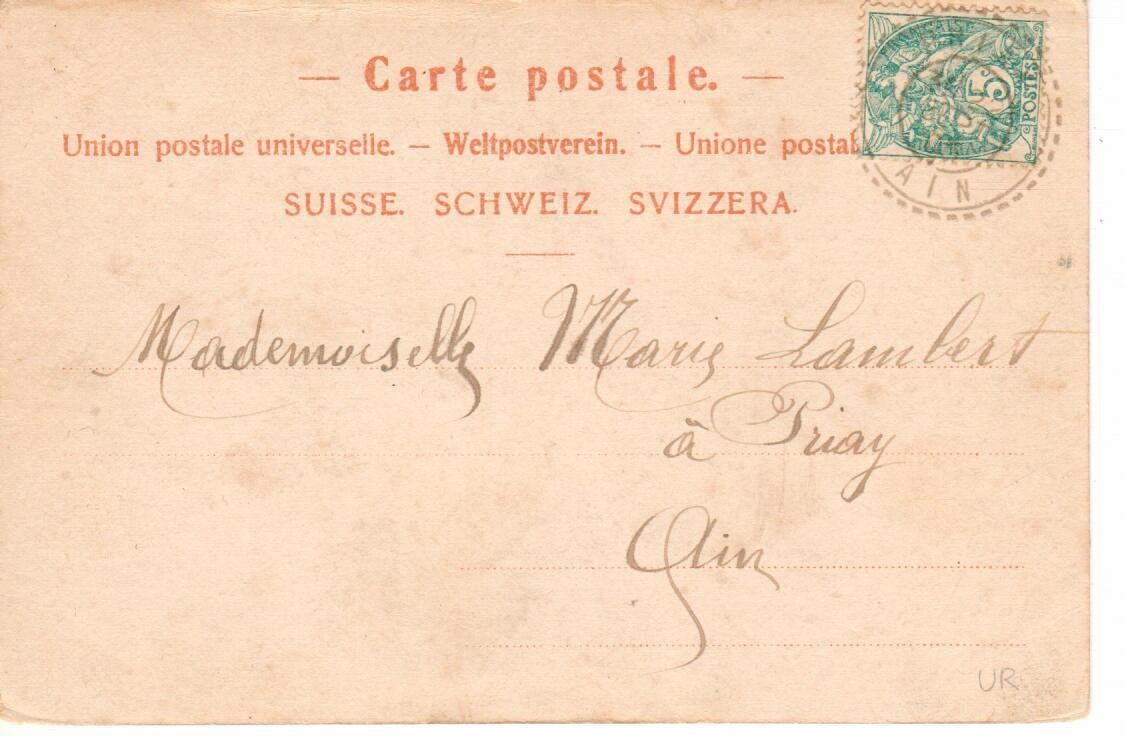 — Carte postale. —
Union postale universelle. — Weltpostverein. — Unione postal
SUISSE. SCHWEIZ. SVIZZERA.
5
POSTES
AIN
Mademoiselle Marie Lambert
à Priay
Ain
UR